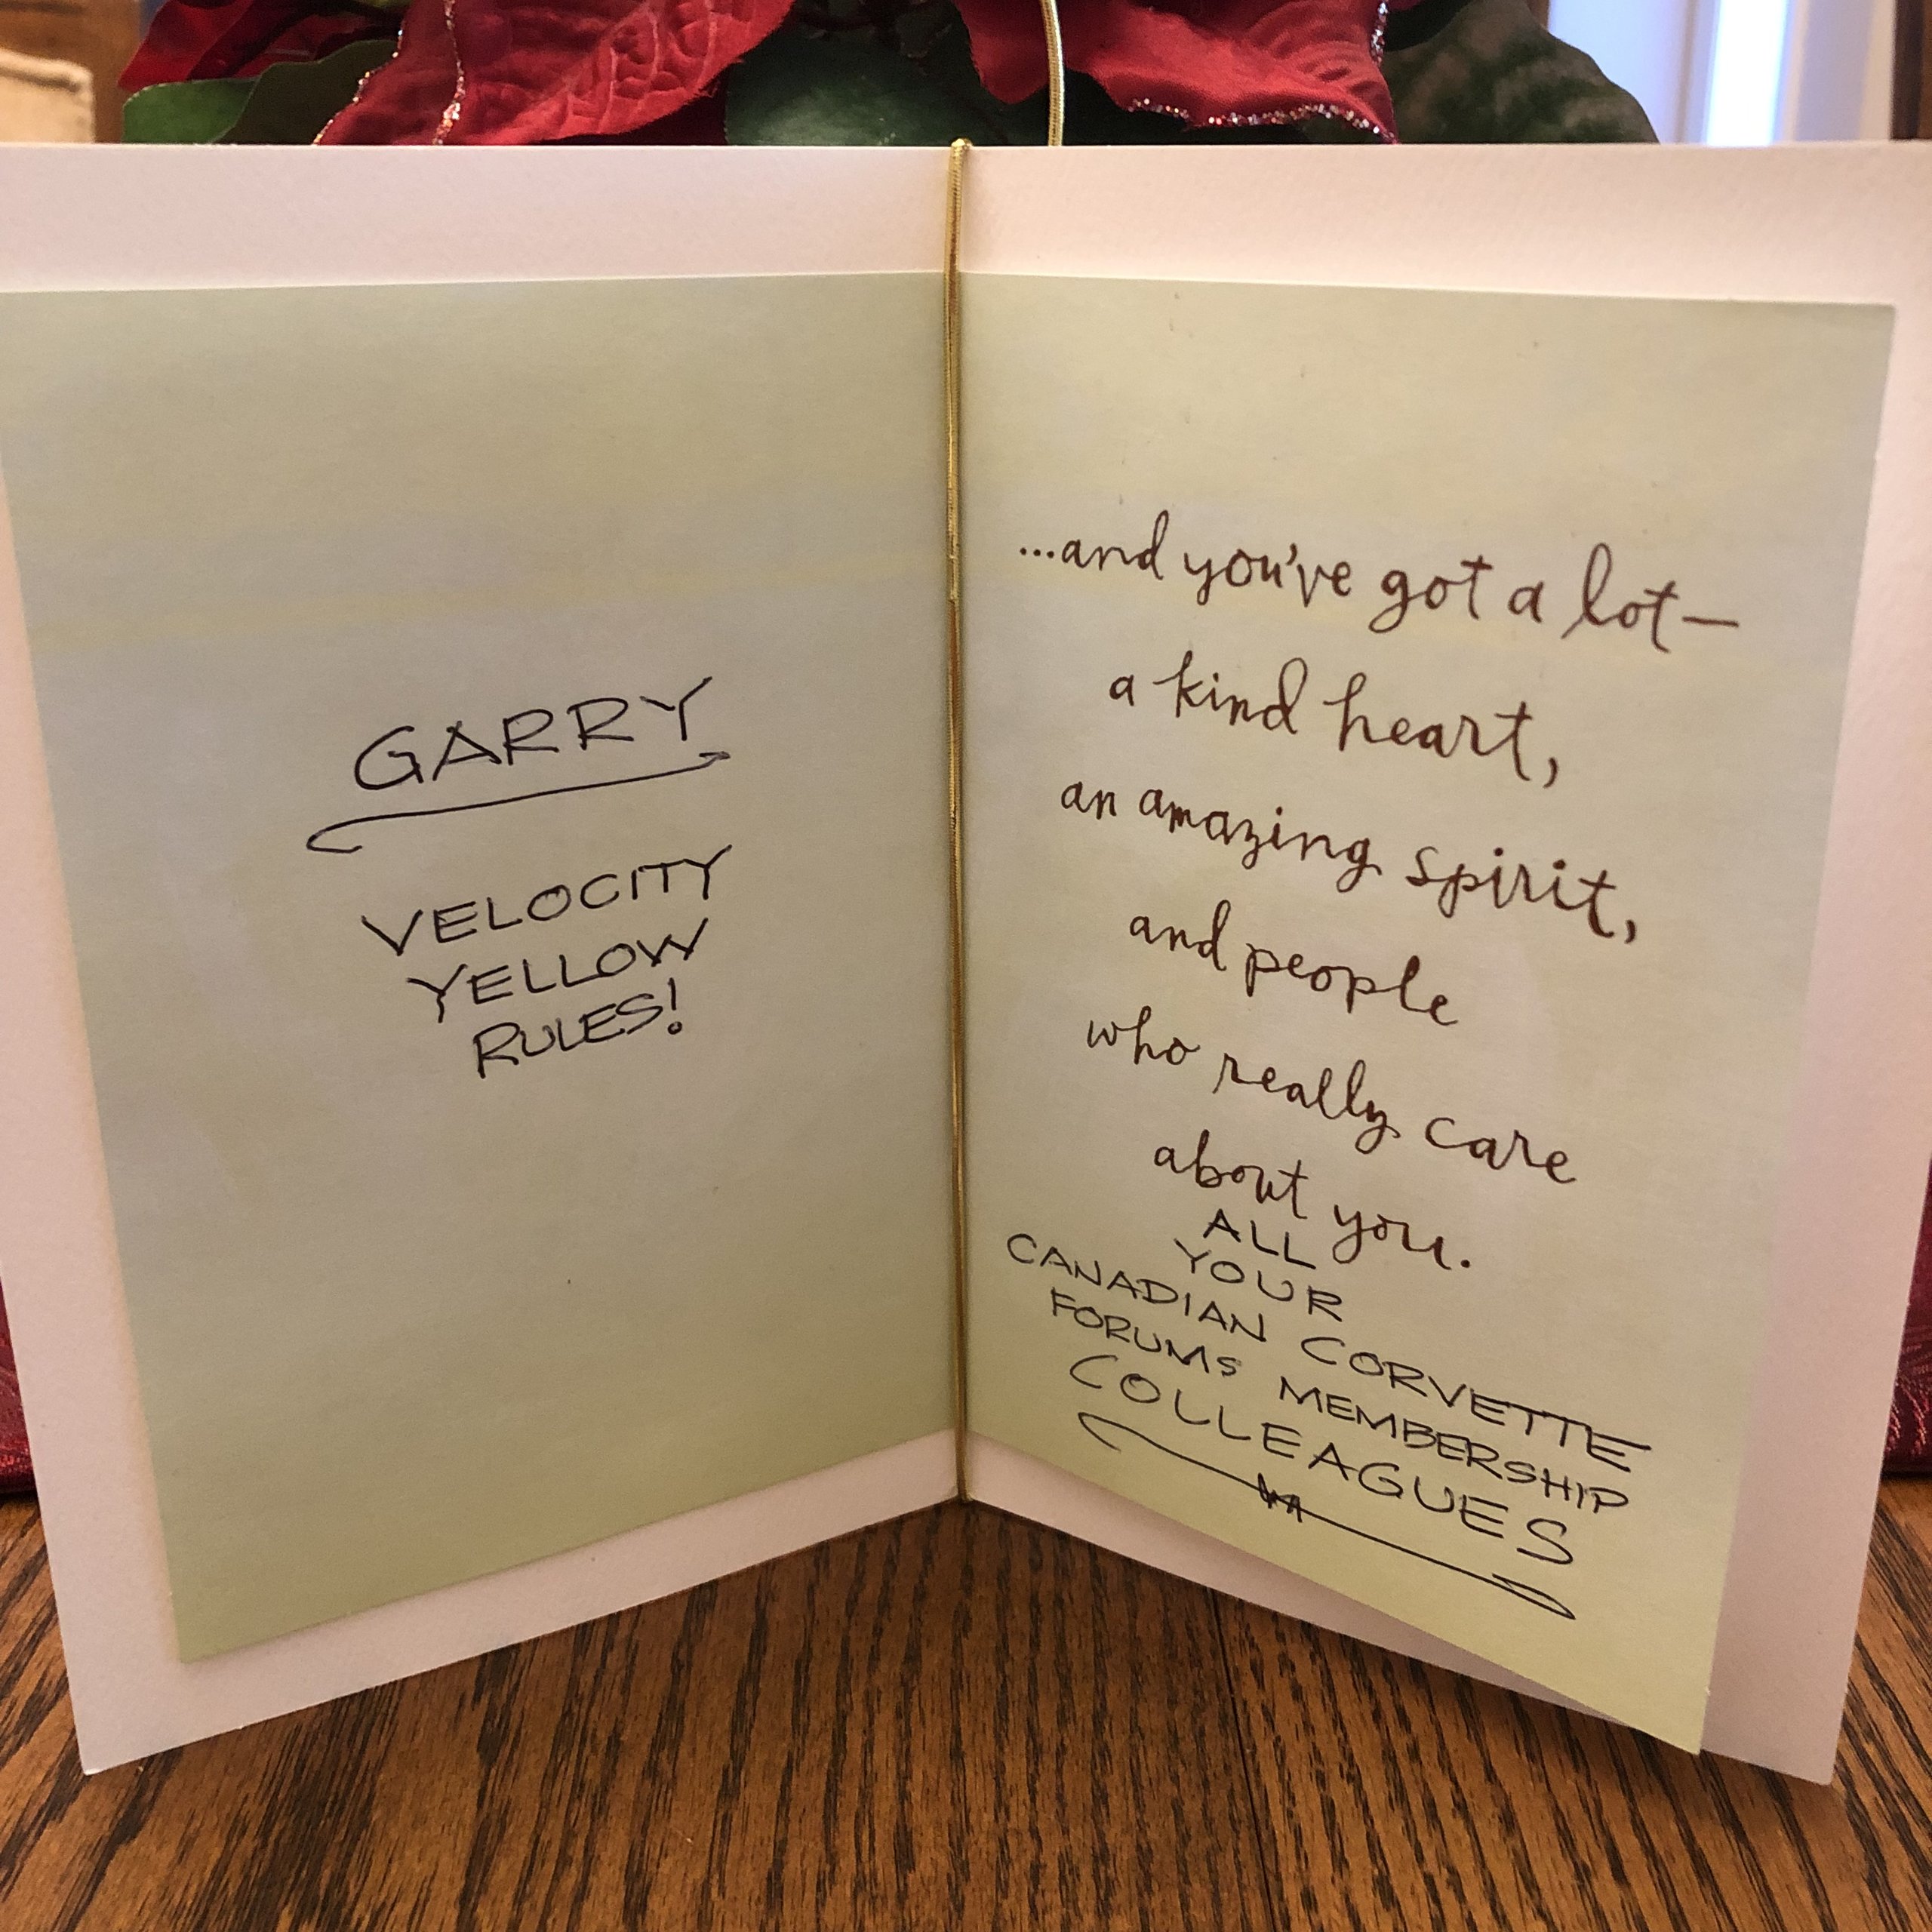 GARRY
VELOCITY
YELLOW
RULES!
...and you've got a lot—
a kind heart,
an amazing spirit,
and people
who really care
about you.
ALL
YOUR
CANADIAN CORVETTE
FORUMS MEMBERSHIP
COLLEAGUES